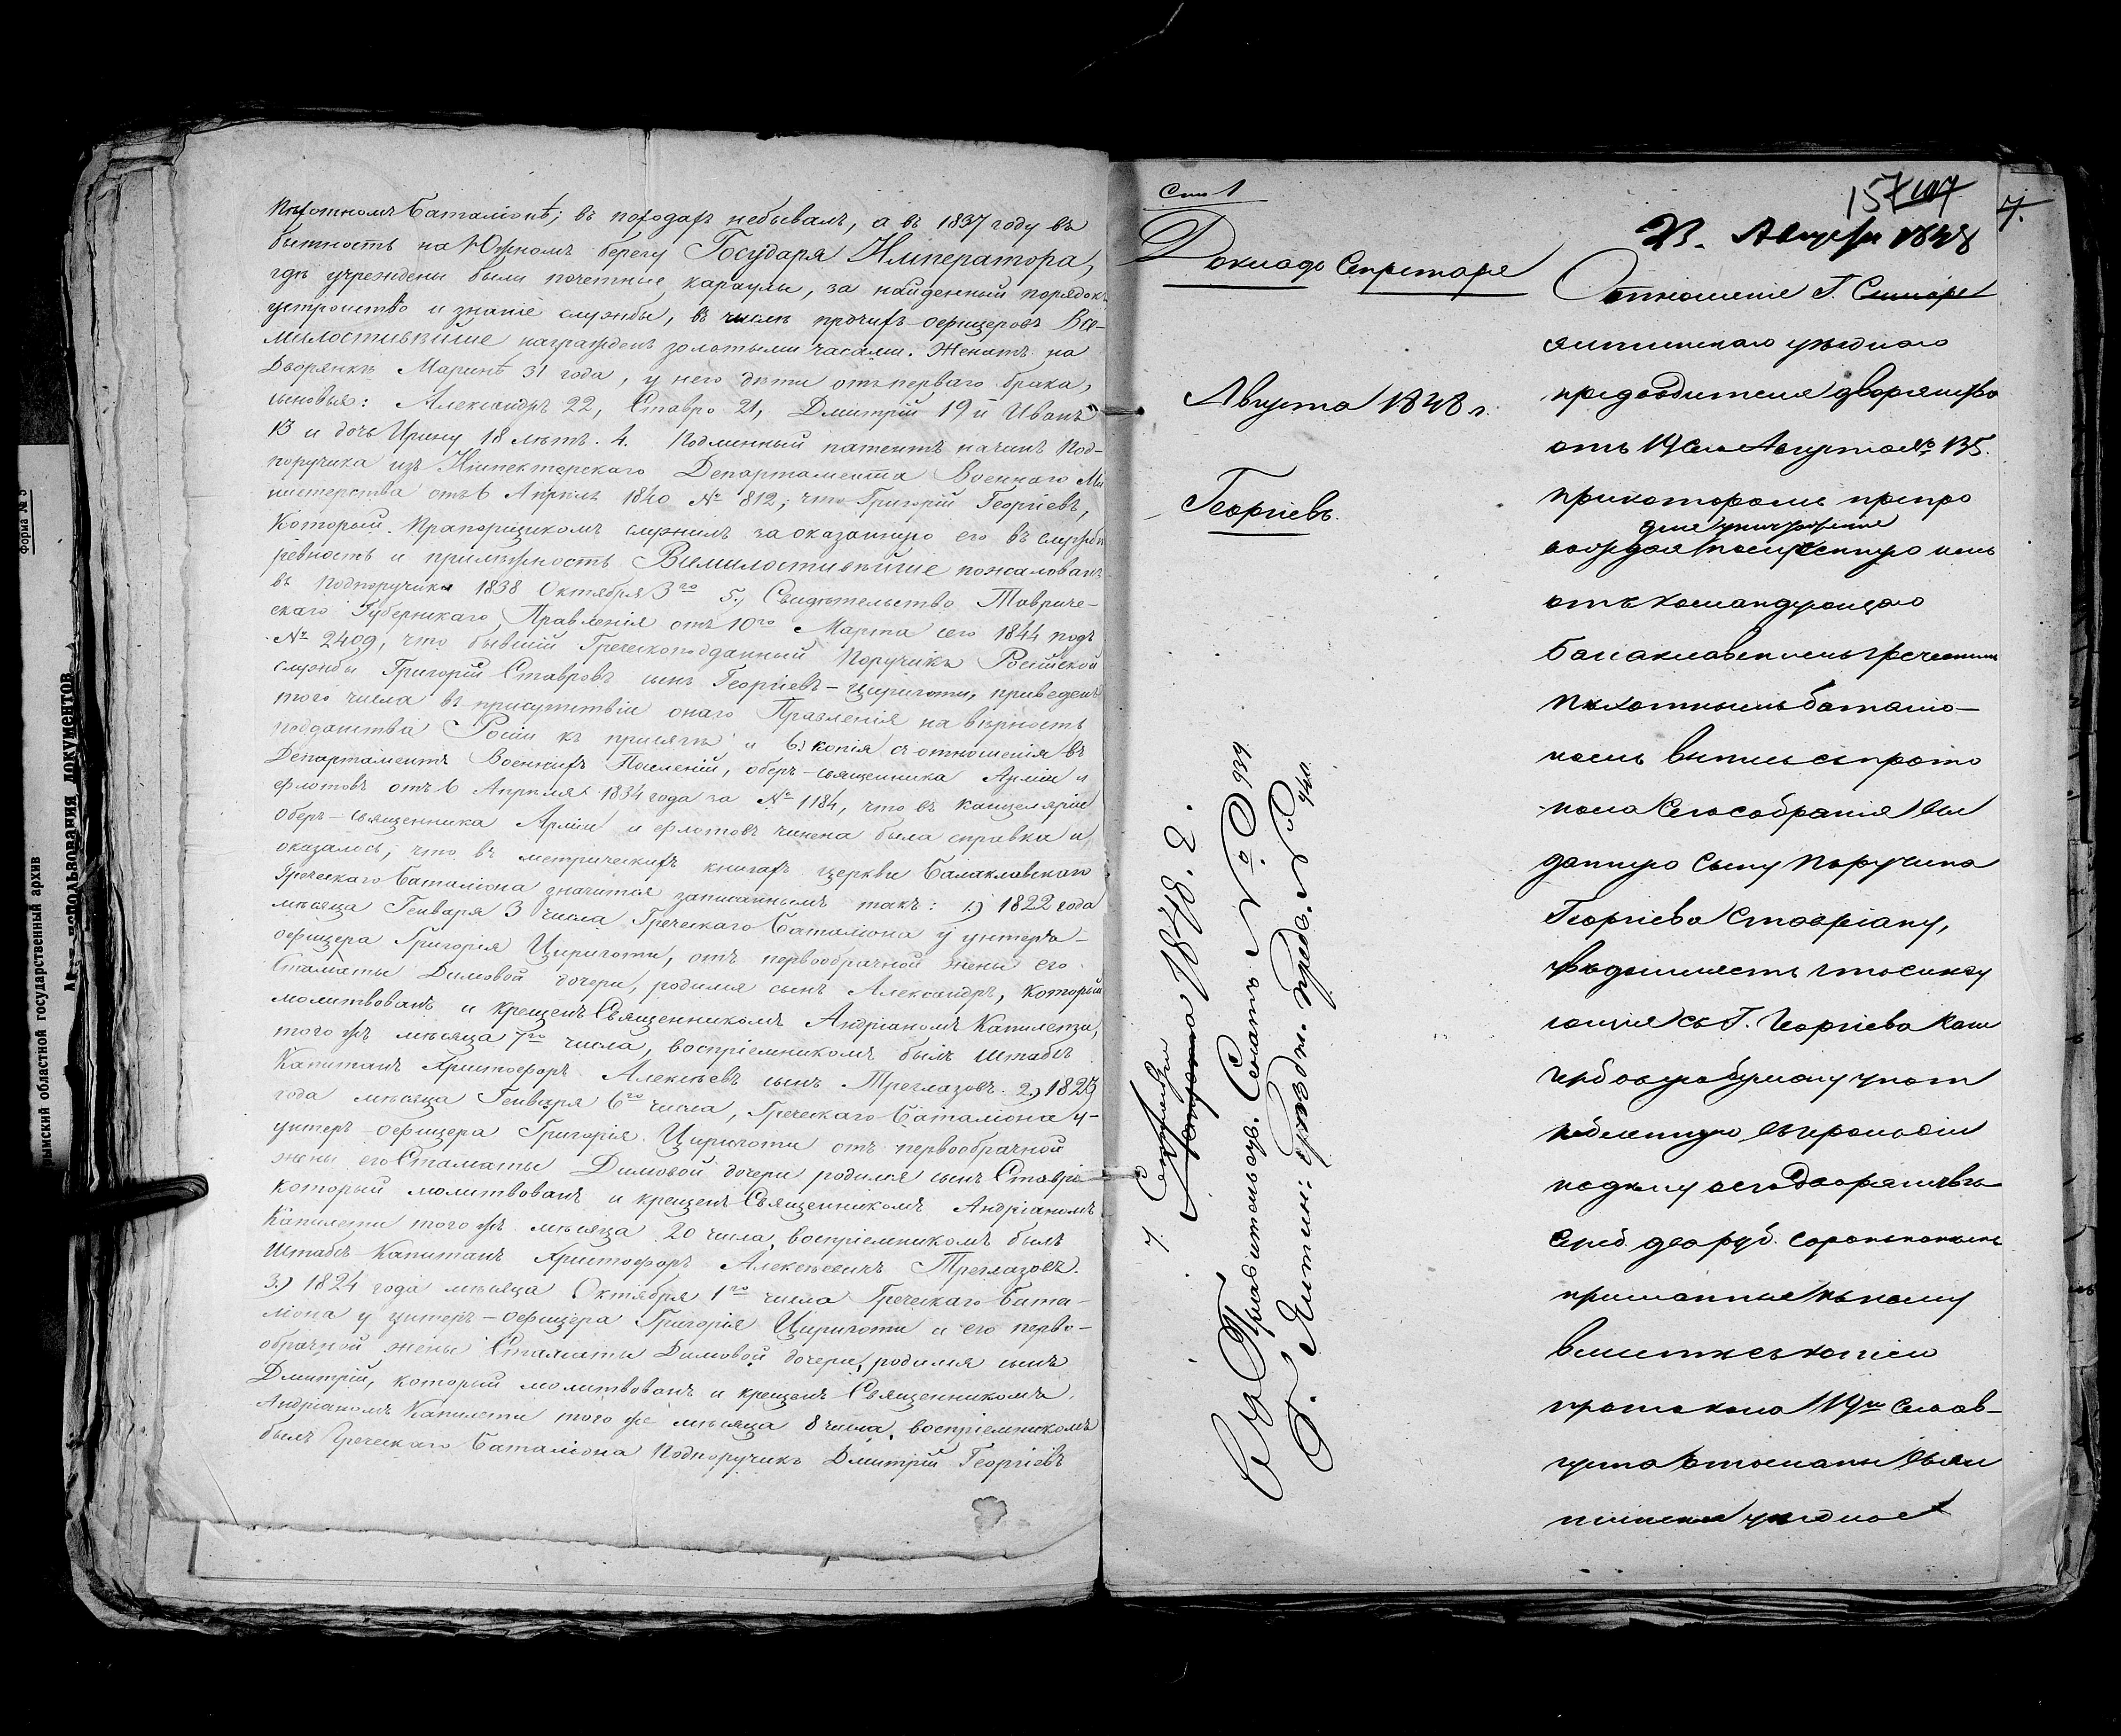 Пѣхотномъ Баталіонѣ; въ походахъ небывалъ, а въ 1837 году въ
бытность на Южномъ берегу Государя Императора,
гдѣ учреждены были почетные караулы, за найденный порядокъ
устройство и знаніе службы, въ числѣ прочихъ офицеровъ Все-
милостивѣйше награжденъ золотыми часами. Женатъ на
Дворянкѣ Маринѣ 31 года, у него дѣти отъ перваго брака,
сыновья: Александръ 22, Ставро 21, Дмитрій 19 и Иванъ
13 и дочь Ирину 18 лѣтъ. 4. Подлинный патентъ на чинъ Под-
поручика изъ Инспекторскаго Департамента Военнаго Ми
нистерства отъ 6 Апрѣля 1840 № 812, что Григорій Георгіевъ,
который Прапорщикомъ служилъ за оказанную его въ службѣ
ревность и прилѣжность Всемилостивѣйше пожалованъ
въ Подпоручики 1838 Октября 3го 5.) Свидѣтельство Тавриче-
скаго Губернскаго Правленія отъ 10го Марта сего 1844 подъ
№ 2409, что бывшій Греческоподданный Поручикъ Російской
службы Григорій Ставровъ сынъ Георгіевъ-Цириготи, приведенъ
того числа въ присутствіи онаго Правленія на вѣрность
подданства Росіи къ присягѣ и 6.) копія съ отношенія въ
Департаментъ Военныхъ Поселеній, оберъ-священника Арміи и
флотовъ отъ 6 Апрѣля 1834 года за № 1184, что въ канцеляріи
Оберъ-священника Арміи и флотовъ чинена была справка и
оказалось, что въ метрическихъ книгахъ церкви Балаклавскаго
Греческаго Баталіона значится записаннымъ такъ: 1.) 1822 года
мѣсяца Генваря 3 числа Греческаго Баталіона у унтеръ-
офицера Григорія Цириготи, отъ первообрачной жены его
Стаматы Димовой дочери, родился сынъ Александръ, который
молитвованъ и крещенъ Священникомъ Андріаномъ Капилети,
того жъ мѣсяца 7го числа, воспріемникомъ былъ Штабсъ
Капитанъ Христофоръ Алексѣевъ сынъ Треглазовъ. 2.) 1823
года мѣсяца Генваря 6го числа, Греческаго Баталіона у
унтеръ-офицера Григорія Цириготи отъ первообрачной
жены его Стаматы Димовой дочери родился сынъ Ставро
который молитвованъ и крещенъ Священникомъ Андріаномъ
Капилети того жъ мѣсяца 20 числа, воспріемникомъ былъ
Штабсъ-Капитанъ Христофоръ Алексѣевичъ Треглазовъ.
3.) 1824 года мѣсяца Октября 1го числа Греческаго Бата-
ліона у унтеръ-офицера Григорія Цириготи и его перво-
обрачной жены Стаматы Димовой дочери, родился сынъ
Дмитрій, который молитвованъ и крещенъ Священникомъ
Андріаномъ Капилети того же мѣсяца 8 числа, воспріемникомъ
былъ Греческаго Баталіона Подпоручикъ Дмитрій Георгіевъ
157
7.
23. Августа 1848
Докладъ Секретаря
Августа 1848 г.
Георгіевъ.
7. Сентября 1848. г.
Въ Правительств. Сенатъ № 939
Г. Ялтин: уѣздн. предв. № 940
Отношеніе Г. Симфер
ялтинскаго уѣзднаго
предводителя дворянства
отъ 19 сего Августа № 135.
при которомъ препро
для уничтоженія
вождая полученную имъ
отъ командующаго
Балаклавскимъ греческимъ
пѣхотнымъ баталіо-
номъ выпись съ прото
кола сего собранія вы
данную сыну Поручика
Георгіева Ставріану,
увѣдомляетъ что слѣду
ющія съ Г. Георгіева
за гербовую бумагу упот
ребленную въ производствѣ
по дѣлу о его дворянствѣ
сереб. два руб. сорокъ копѣекъ
присланные къ нему
вмѣстѣ съ копіею
протокола 119 сего ав-
густа отосланы въ ял
тинское уѣздное
Форма № 3
Крымский областной государственный архив
использования документов